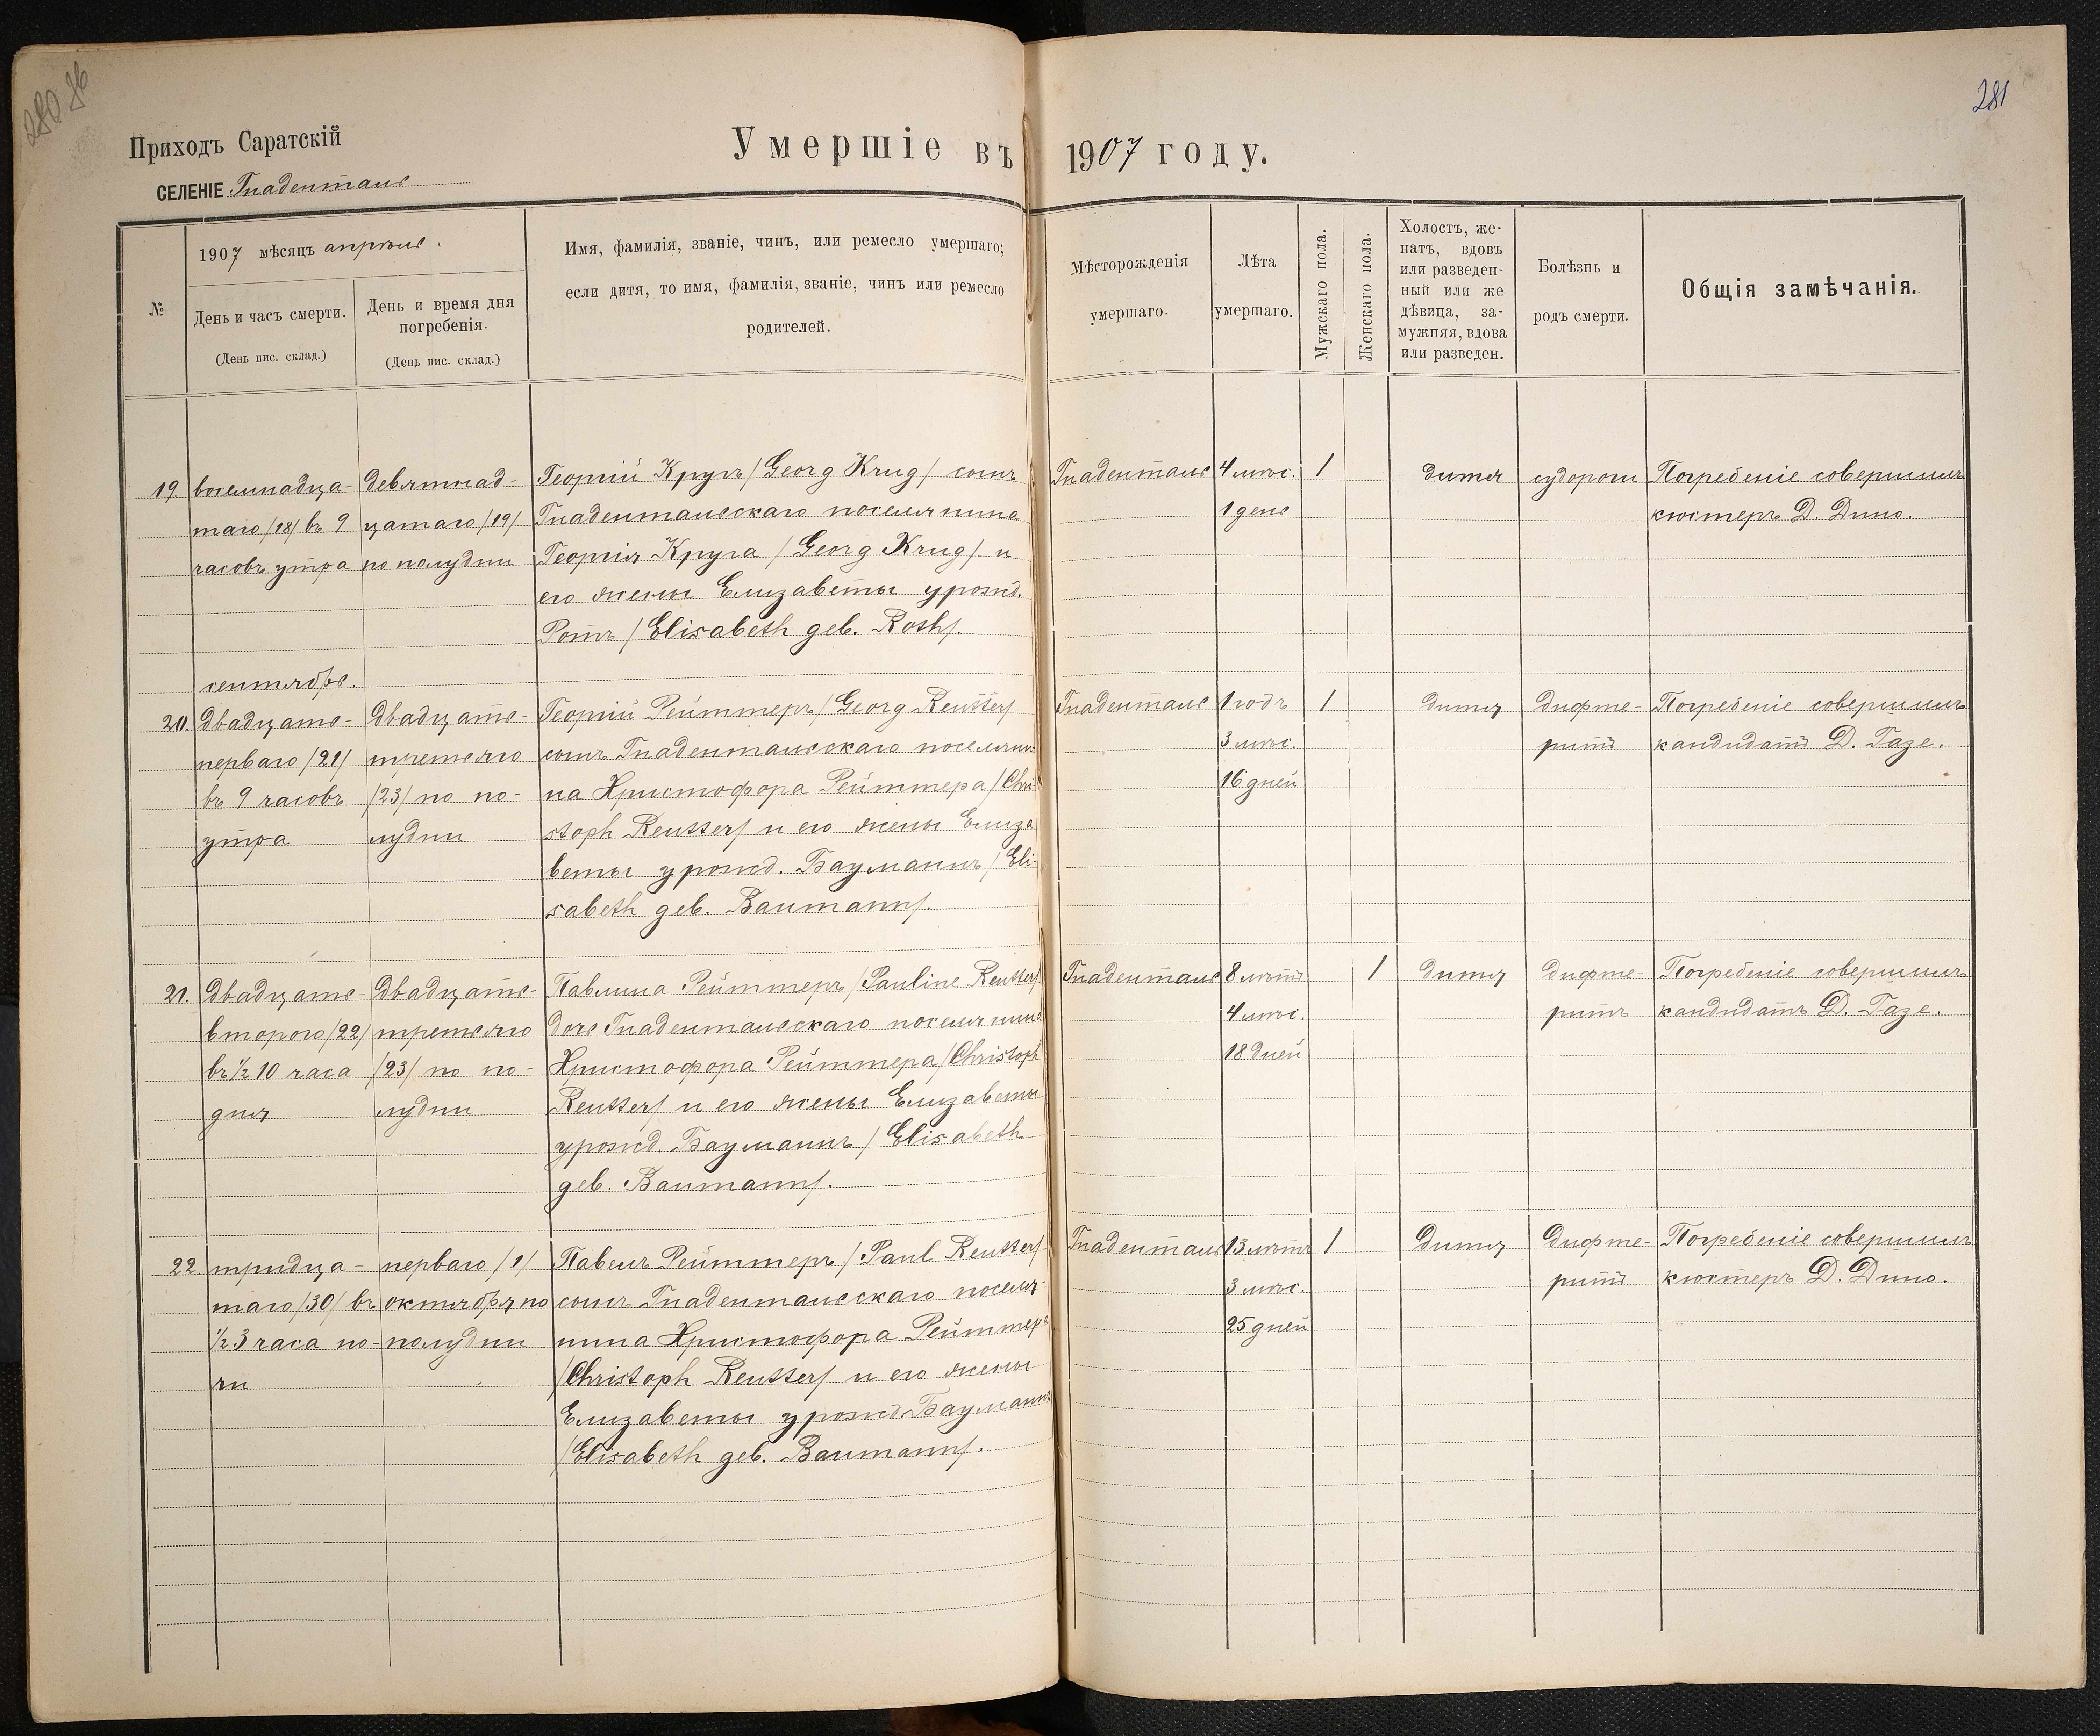 280 об
281
Приходъ Саратскій
Умершіе въ 1907 году.
СЕЛЕНІЕ Гнаденталь
№
1907 мѣсяцъ апрѣль.
День и часъ смерти.
(День пис. склад.)
День и время дня
погребенія.
(День пис. склад.)
Имя, фамилія, званіе, чинъ, или ремесло умершаго;
если дитя, то имя, фамилія, званіе, чинъ или ремесло
родителей.
Мѣсторожденія
умершаго.
Лѣта
умершаго.
Мужскаго пола.
Женскаго пола.
Холостъ, же-
натъ, вдовъ
или разведен-
ный или же
дѣвица, за-
мужняя, вдова
или разведен.
Болѣзнь и
родъ смерти.
Общія замѣчанія.
19
восемнадца-
таго /18/ въ 9
часовъ утра
девятнад-
цатаго /19/
по полудни
Георгій Кругъ /Georg Krug/ сынъ
Гнадентальскаго поселянина
Георгія Круга /Georg Krug/ и
его жены Елизаветы урожд.
Ротъ /Elisabeth geb. Roth/.
Гнаденталь
4 мѣс.
1 день
1
дитя
судороги
Погребеніе совершилъ
кюстеръ Д. Дино.
сентябрь.
20.
Двадцать-
перваго /21/
въ 9 часовъ
утра
Двадцать-
третьяго
/23/ по по-
лудни
Георгій Рейттеръ /Georg Reutter/
сынъ Гнадентальскаго поселяни-
на Христофора Рейттера /Chri-
stoph Reutter/ и его жены Елиза
веты урожд. Бауманнъ /Eli-
sabeth geb. Baumann/.
Гнаденталь
1 годъ
3 мѣс.
16 дней
1
дитя
дифте-
ритъ
Погребеніе совершилъ
кандидатъ Д. Газе.
21.
Двадцать-
второго /22/
въ 1/2 10 часа
дня
Двадцать-
третьяго
/23/ по по-
лудни
Павлина Рейттеръ /Pauline Reutter/
дочь Гнадентальскаго поселянина
Христофора Рейттера /Christoph
Reutter/ и его жены Елизаветы
урожд. Бауманнъ /Elisabeth
geb. Baumann/.
Гнаденталь
8 лѣтъ
4 мѣс.
18 дней
1
дитя
дифте-
ритъ
Погребеніе совершилъ
кандидатъ Д. Газе.
22.
тридца-
таго /30/ въ
1/2 3 часа но-
чи
перваго /1/
октября по
полудни
Павелъ Рейттеръ /Paul Reutter/
сынъ Гнадентальскаго поселя-
нина Христофора Рейттера
/Christoph Reutter/ и его жены
Елизаветы урожд. Бауманнъ
/Elisabeth geb. Baumann/.
Гнаденталь
13 лѣтъ
3 мѣс.
25 дней
1
дитя
дифте-
ритъ
Погребеніе совершилъ
кюстеръ Д. Дино.